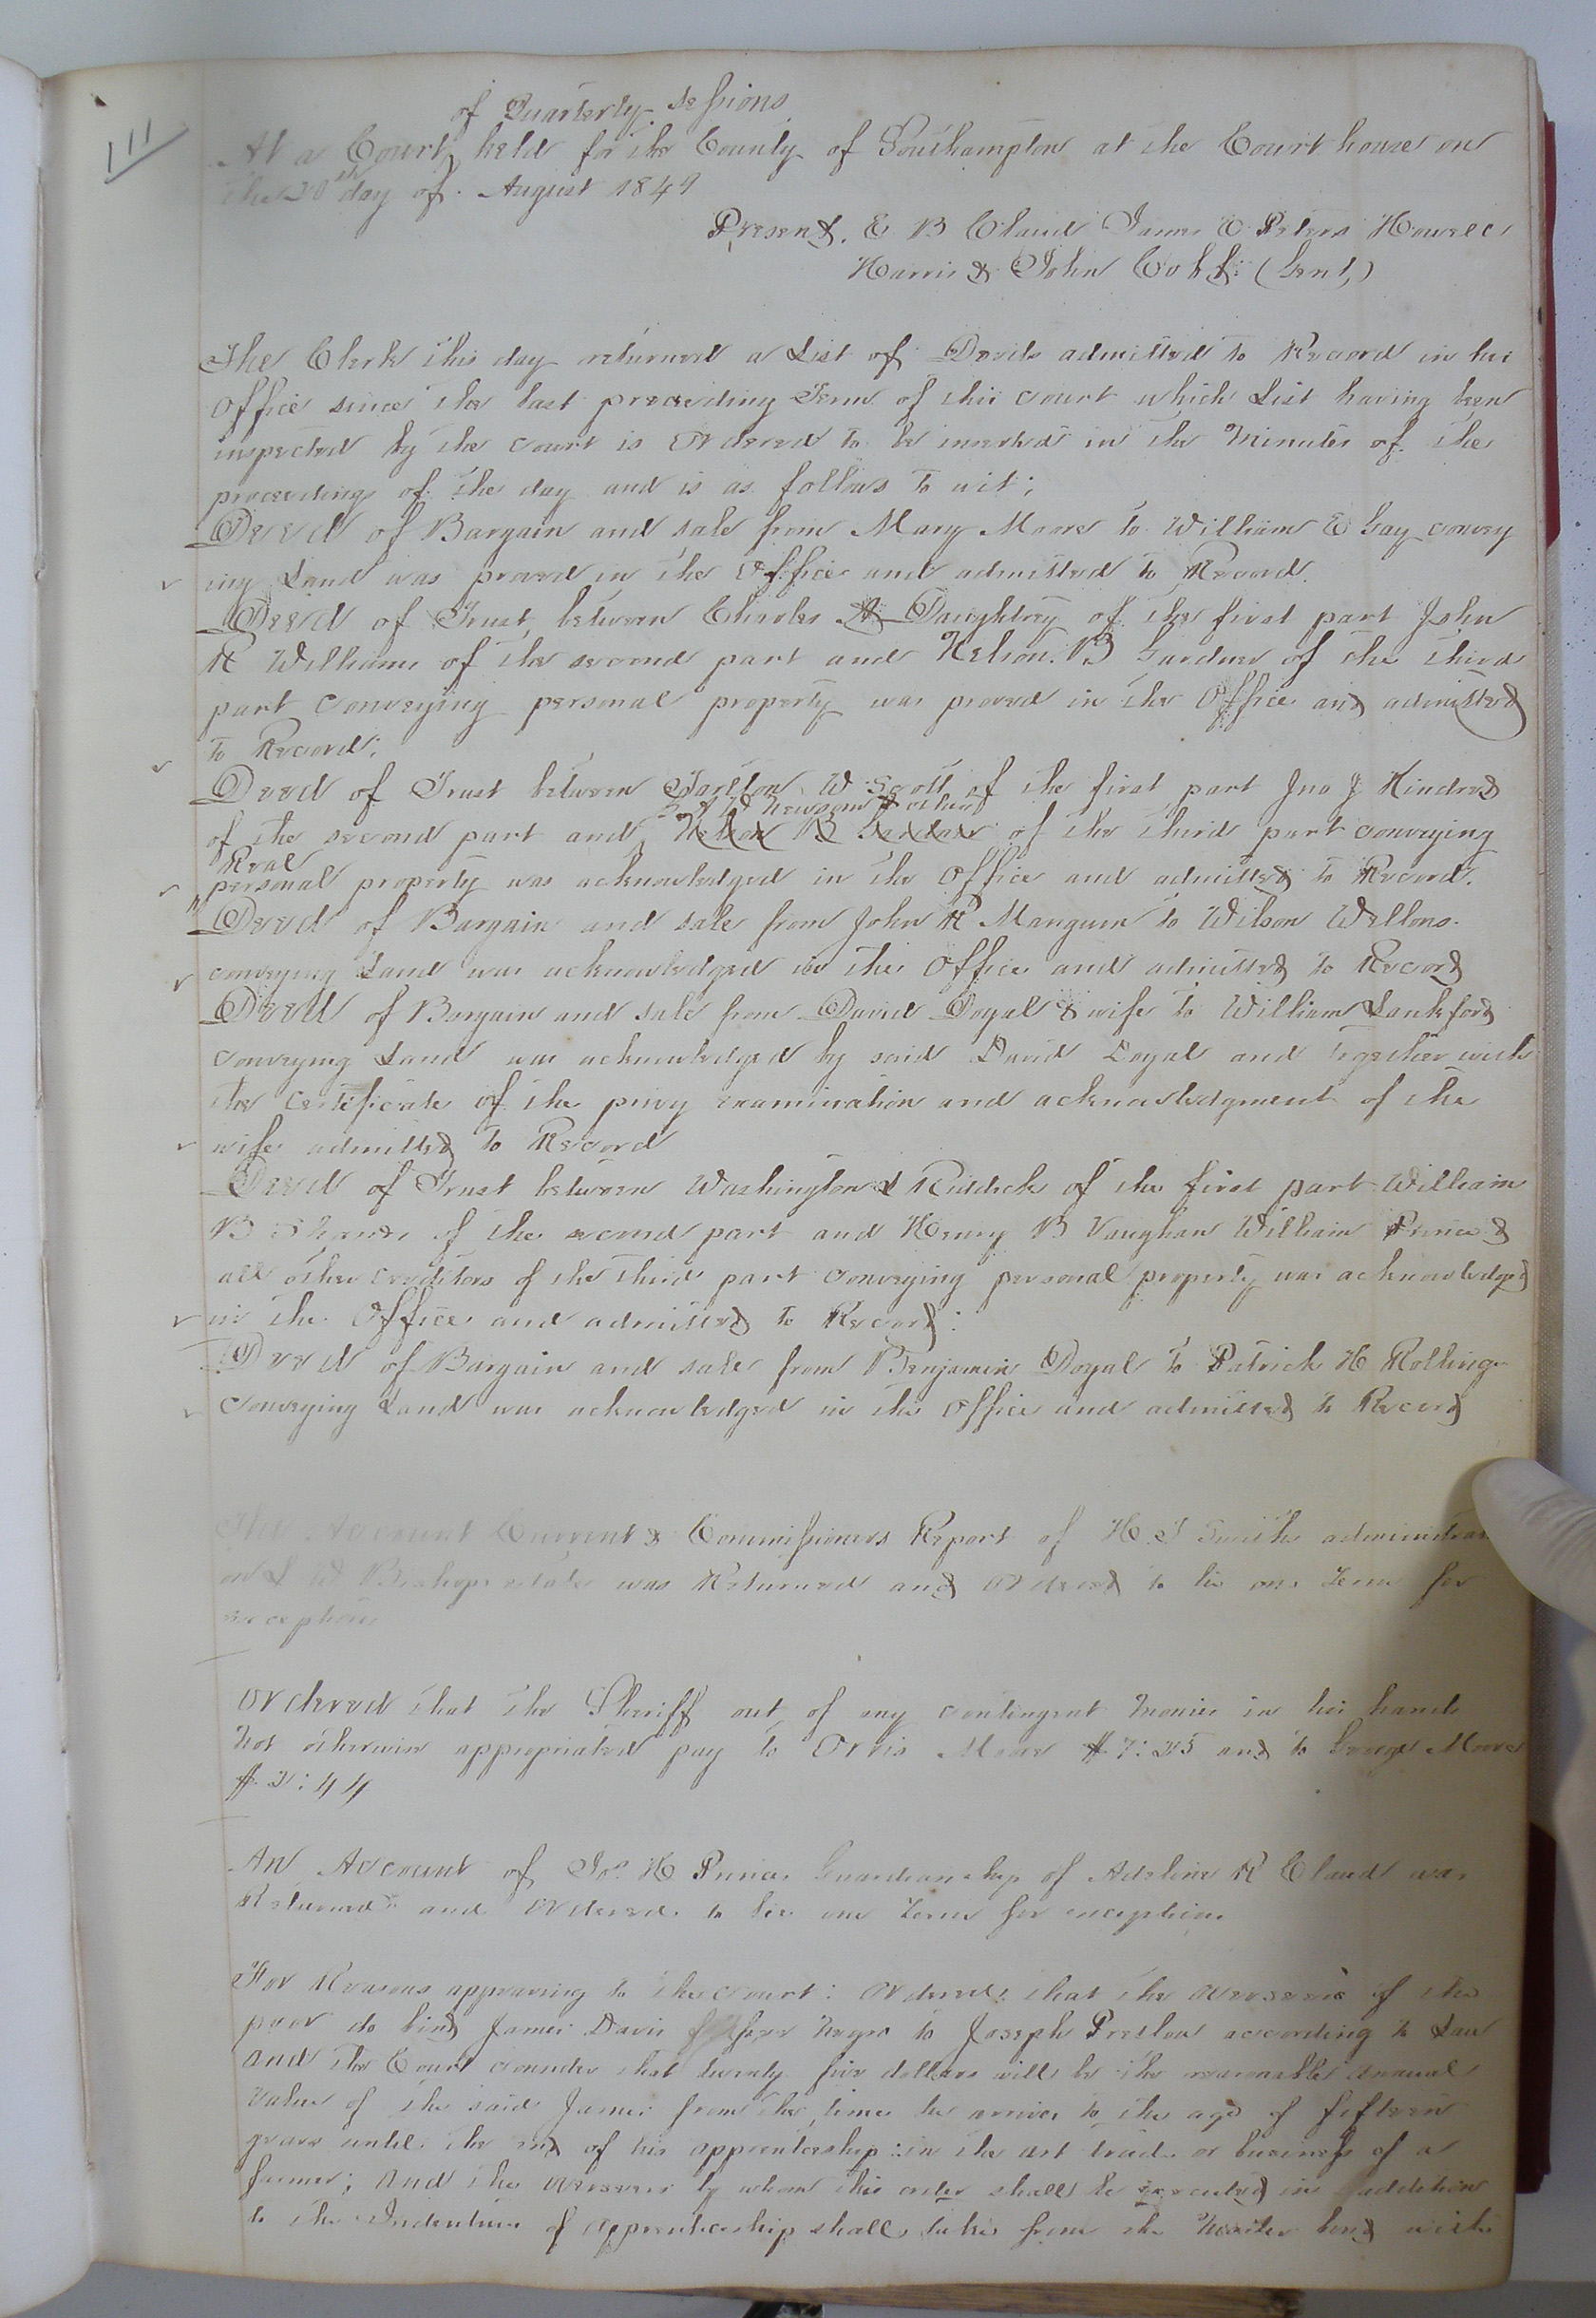 111
of Quarterly Sessions
At a Court held for the County of Southampton at the Court house on
the 20th day of August 1849
Present. E B Claud James E Peters Howell
Harris & John Cobb: (Gent,)
The Clerk this day returned a List of Deeds admitted to Record in his
Office since the last preceeding Term of this court which List having been
inspected by the court is Ordered to be inserted in the Minutes of the
proceedings of the day and is as follows to wit;
Deed of Bargain and sale from Mary Moore to William E Gay convey
ing Land was proved in the Office and admitted to Record.
Deed of Trust between Charles A Daughtrey of the first part John
R Williams of the second part and Nelson B Gardner of the third
part conveying personal property was proved in the Office and admitted
to Record:
Deed of Trust between Tarlton W Scott of the first part Jno J Kindred
W Newsom & others
of the second part and Nelson B Gardner of the third part conveying
Real
personal property was acknowledged in the Office and admitted to Record.
Deed of Bargain and sale from John R Mangum to Wilson Wellons.
conveying Land was acknowledged in the Office and admitted to Record
Deed of Bargain and sale from David Doyal & wife to William Lankford
conveying Land was acknowledged by said David Doyal and together with
the Certificate of the privy examination and acknowledgment of the
wife admitted to Record
Deed of Trust between Washington L Riddick of the first part William
B of the second part and Henry B Vaughan William Prince &
all other Creditors of the third part conveying personal property was acknowledged
in the Office and admitted to Record:
Deed of Bargain and sale from Benjamin Doyal to Patrick H Rollings
conveying Land was acknowledged in the Office and admitted to Record
The Account Current & Commissioners Report of H T Smith administrator
on L W Bishops estate was Returned and Ordered to lie one Term for
exceptions
Ordered that the Sheriff out of any contingent Monies in his hands
not otherwise appropriated pay to Orris Moore $7:35 and to George Moore
$2:44
An Account of Jos. H Prince Guardianship of Adeline R Claud was
Returned and Ordered to lie one Term for exceptions
For Reasons appearing to the court: Ordered that the overseers of the
poor do bind James Davis free Negro to Joseph Preslow according to Law
and the Court consider that twenty five dollars will be the reasonable annual
value of the said James from the time he arrives to the age of fifteen
years until the end of his apprenticeship: in the art trade or business of a
farmer; and the overseers by whom this order shall be executed in addition
to the Indenture of apprenticeship shall take from the Master bond with